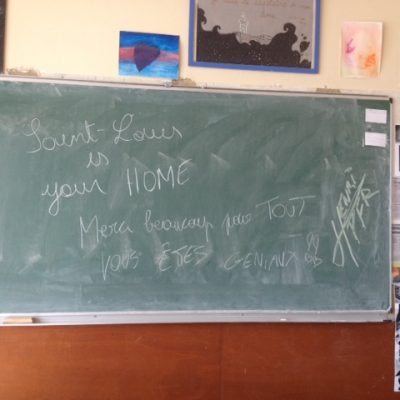 Saint-Louis
is
your HOME
Merci beaucoup pour TOUT
VOUS ÊTES GENIAUX
HENRI